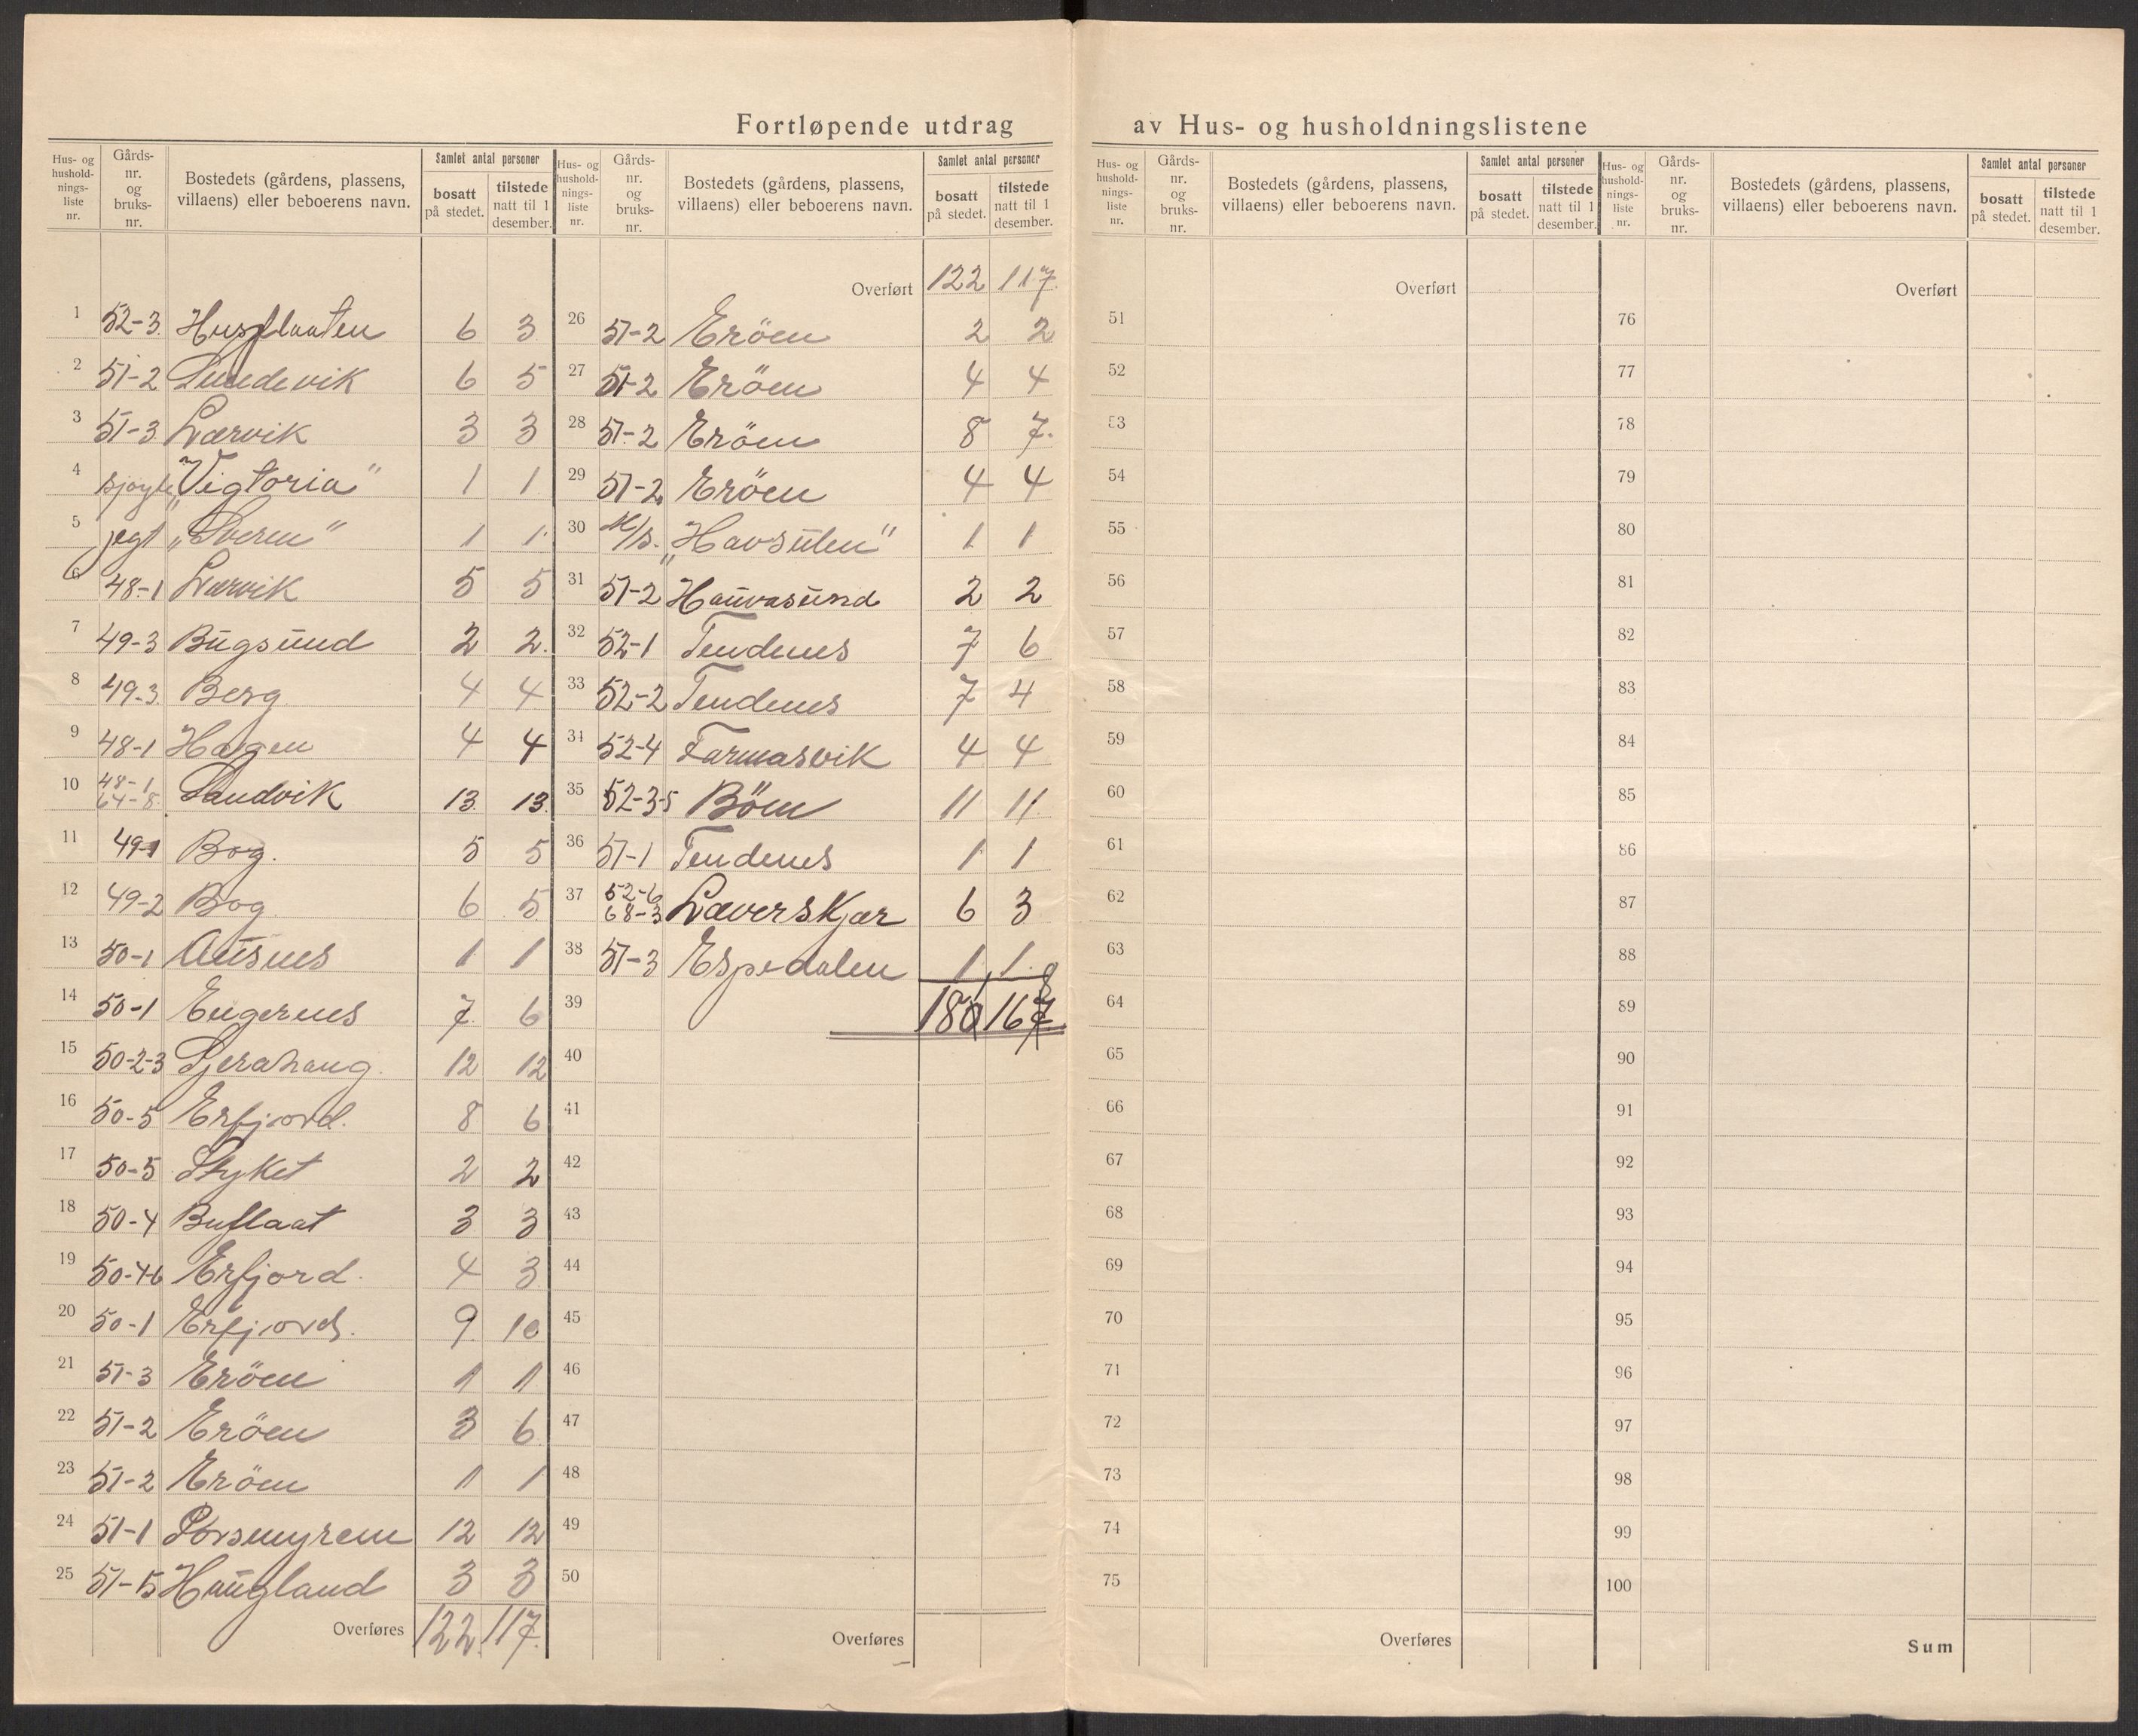 Fortløpende utdrag av Hus- og husholdningslistene
Hus- og husholdnings-liste nr. | Gårds-nr. og bruks-nr. | Bostedets (gårdens, plassens, villaens) eller beboerens navn. | Samlet antal personer | bosatt på stedet. | tilstede natt til 1 desember.
1 52-3 Husflaaten 6 3
2 51-2 Sundevik 6 5
3 51-3 Lærvik 3 3
4 "Vigtoria" 1 1
5 jegt "Sveren" 1 1
6 48-1 Lærvik 5 5
7 49-3 Bugsund 2 2
8 49-3 Berg 4 4
9 48-1 Hagen 4 4
10 48-1 64-8 Sandvik 13 13
11 49-1 Bog. 5 5
12 49-2 Bog 6 5
13 50-1 Ausnes 1 1
14 50-1 Engernes 7 6
15 50-2-3 Sjerahaug. 12 12
16 50-5 Erfjord. 8 6
17 50-5 Stykket 2 2
18 50-4 Buflaat 3 3
19 50-4-6 Erfjord. 4 3
20 50-1 Erfjord. 9 10
21 51-3 Eröen 1 1
22 51-2 Eröen 3 6
23 51-2 Eröen 1 1
24 51-1 Porsmyren 12 12
25 51-15 Haugland 3 3
Overføres 122 117
Hus- og husholdnings-liste nr. | Gårds-nr. og bruks-nr. | Bostedets (gårdens, plassens, villaens) eller beboerens navn. | Samlet antal personer | bosatt på stedet. | tilstede natt til 1 desember.
Overført 122 117
26 51-2 Eröen 2 2
27 51-2 Eröen 4 4
28 51-2 Eröen 8 7
29 51-2 Eröen 4 4
30 M/S. "Havsulen" 1 1
31 51-2 Hauvasund 2 2
32 52-1 Tendenes 7 6
33 52-2 Tendenes 7 4
34 52-4 Tarmasvik 4 4
35 52-3-5 Böen 11 11
36 51-1 Tendenes 1 1
37 52-6 68-3 Læverskjær 6 3
38 51-3 Espedalen 1 1
39 180 167 8
40
41
42
43
44
45
46
47
48
49
50
Overføres
Hus- og husholdnings-liste nr. | Gårds-nr. og bruks-nr. | Bostedets (gårdens, plassens, villaens) eller beboerens navn. | Samlet antal personer | bosatt på stedet. | tilstede natt til 1 desember.
Overført
51
52
53
54
55
56
57
58
59
60
61
62
63
64
65
66
67
68
69
70
71
72
73
74
75
Overføres
Hus- og husholdnings-liste nr. | Gårds-nr. og bruks-nr. | Bostedets (gårdens, plassens, villaens) eller beboerens navn. | Samlet antal personer | bosatt på stedet. | tilstede natt til 1 desember.
Overført
76
77
78
79
80
81
82
83
84
85
86
87
88
89
90
91
92
93
94
95
96
97
98
99
100
Sum